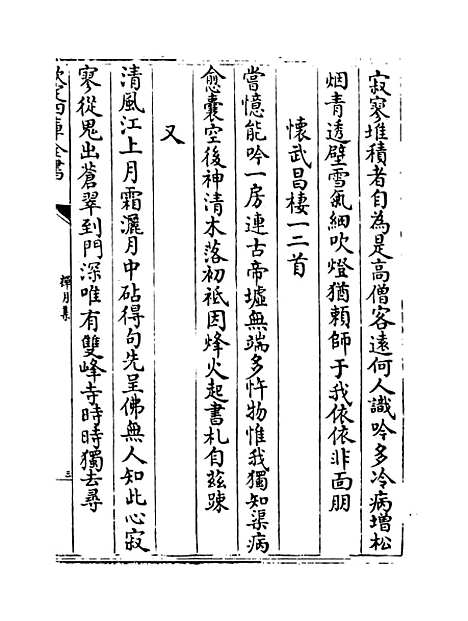 寂寥堆積者自為是高僧客遠何人識吟多冷病增松
烟青透壁雪氣細吹燈猶賴師于我依依非面朋
懷武昌棲一二首
嘗憶能吟一房連古帝墟無端多忤物惟我獨知渠病
愈囊空後神清木落初祗因烽火起書札自茲踈
又
清風江上月霜灑月中砧得句先呈佛無人知此心寂
寥從鬼出蒼翠到門深唯有雙峰寺時時獨去尋
欽定四庫全書
禪月集
三